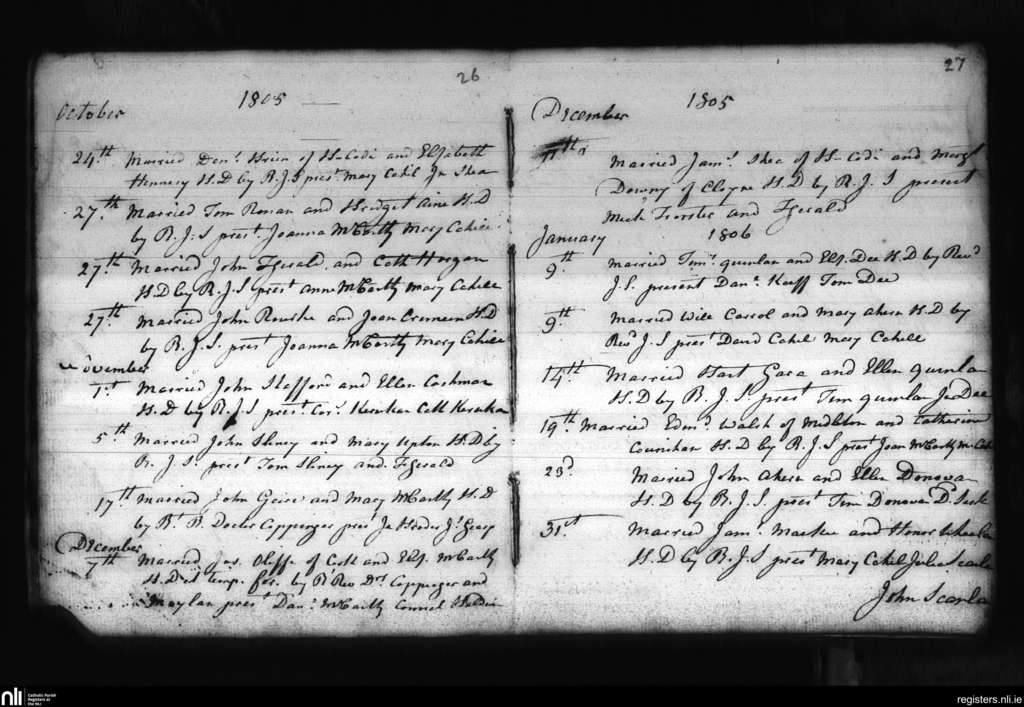 26
1805
October
24.th Married Den.s Brien of H. Codi and Elizabeth
Hennesy H.D by R.J.S pres.t Mary Cahil Jn Shea
27.th Married Tom Ronan and Bridget Aine H.D
by R.J.S pres.t Joanna McCartly Mary Cahill
27.th Married John Fgerald and Cath Horgan
H.D by R.J.S pres.t Anne McCartly Mary Cahill
27.th Married John Rourke and Joan H.D
by R.J.S. pres.t Joanna McCartly Mary Cahill
November
1st Married John Stafford and Ellen Cashman
H.D by R.J.S pres.t Cor.s Kerisham Cath
5.th Married John Shiney and Mary Upton H.D by
R.J.S. pres.t Tom Shiney and Fgerald
17th Married John Geise and Mary McCartly H.D
by R.t R. Doctor Coppinger pres.t Jn Jn Geary
December
7th Married Jas. Kiffe of Cork and Eliz. McCartly
H.D by R.t Rev Dr. Coppinger and
Moylan pres.t Dan.l McCartly
27
December 1805
Married Jam.s Shea of H. Codi and Marg.t
Downy of Cloyne H.D by R.J.S present
Mich Forster and Fgerald
January 1806
9.th Married Tim.y Quinlan and Elz. Dee H.D by Rev.d
J.S. present Dan.l Keeff Tom Dee
9.th Married Will Carrol and Mary Ahern H.D by
Rev.d J.S pres.t David Cahil Mary Cahill
14th Married Bart Gara and Ellen Quinlan
H.D by R.J.S. pres.t Tim Quinlan Jn Dee
19th Married Edm.d Walsh of Midleton and Catherine
Counihan H.D by R.J.S pres.t Joan McCartly M. Cah
23.d Married John Ahern and Ellen Donovan
H.D by R.J.S. pres.t Tim Donovan D.
31.st Married Jam.s and Honor
H.D by R.J.S pres.t Mary Cahil Julia Scanla
John Scanla
nli
Catholic Parish
Registers at
the NLI
registers.nli.ie